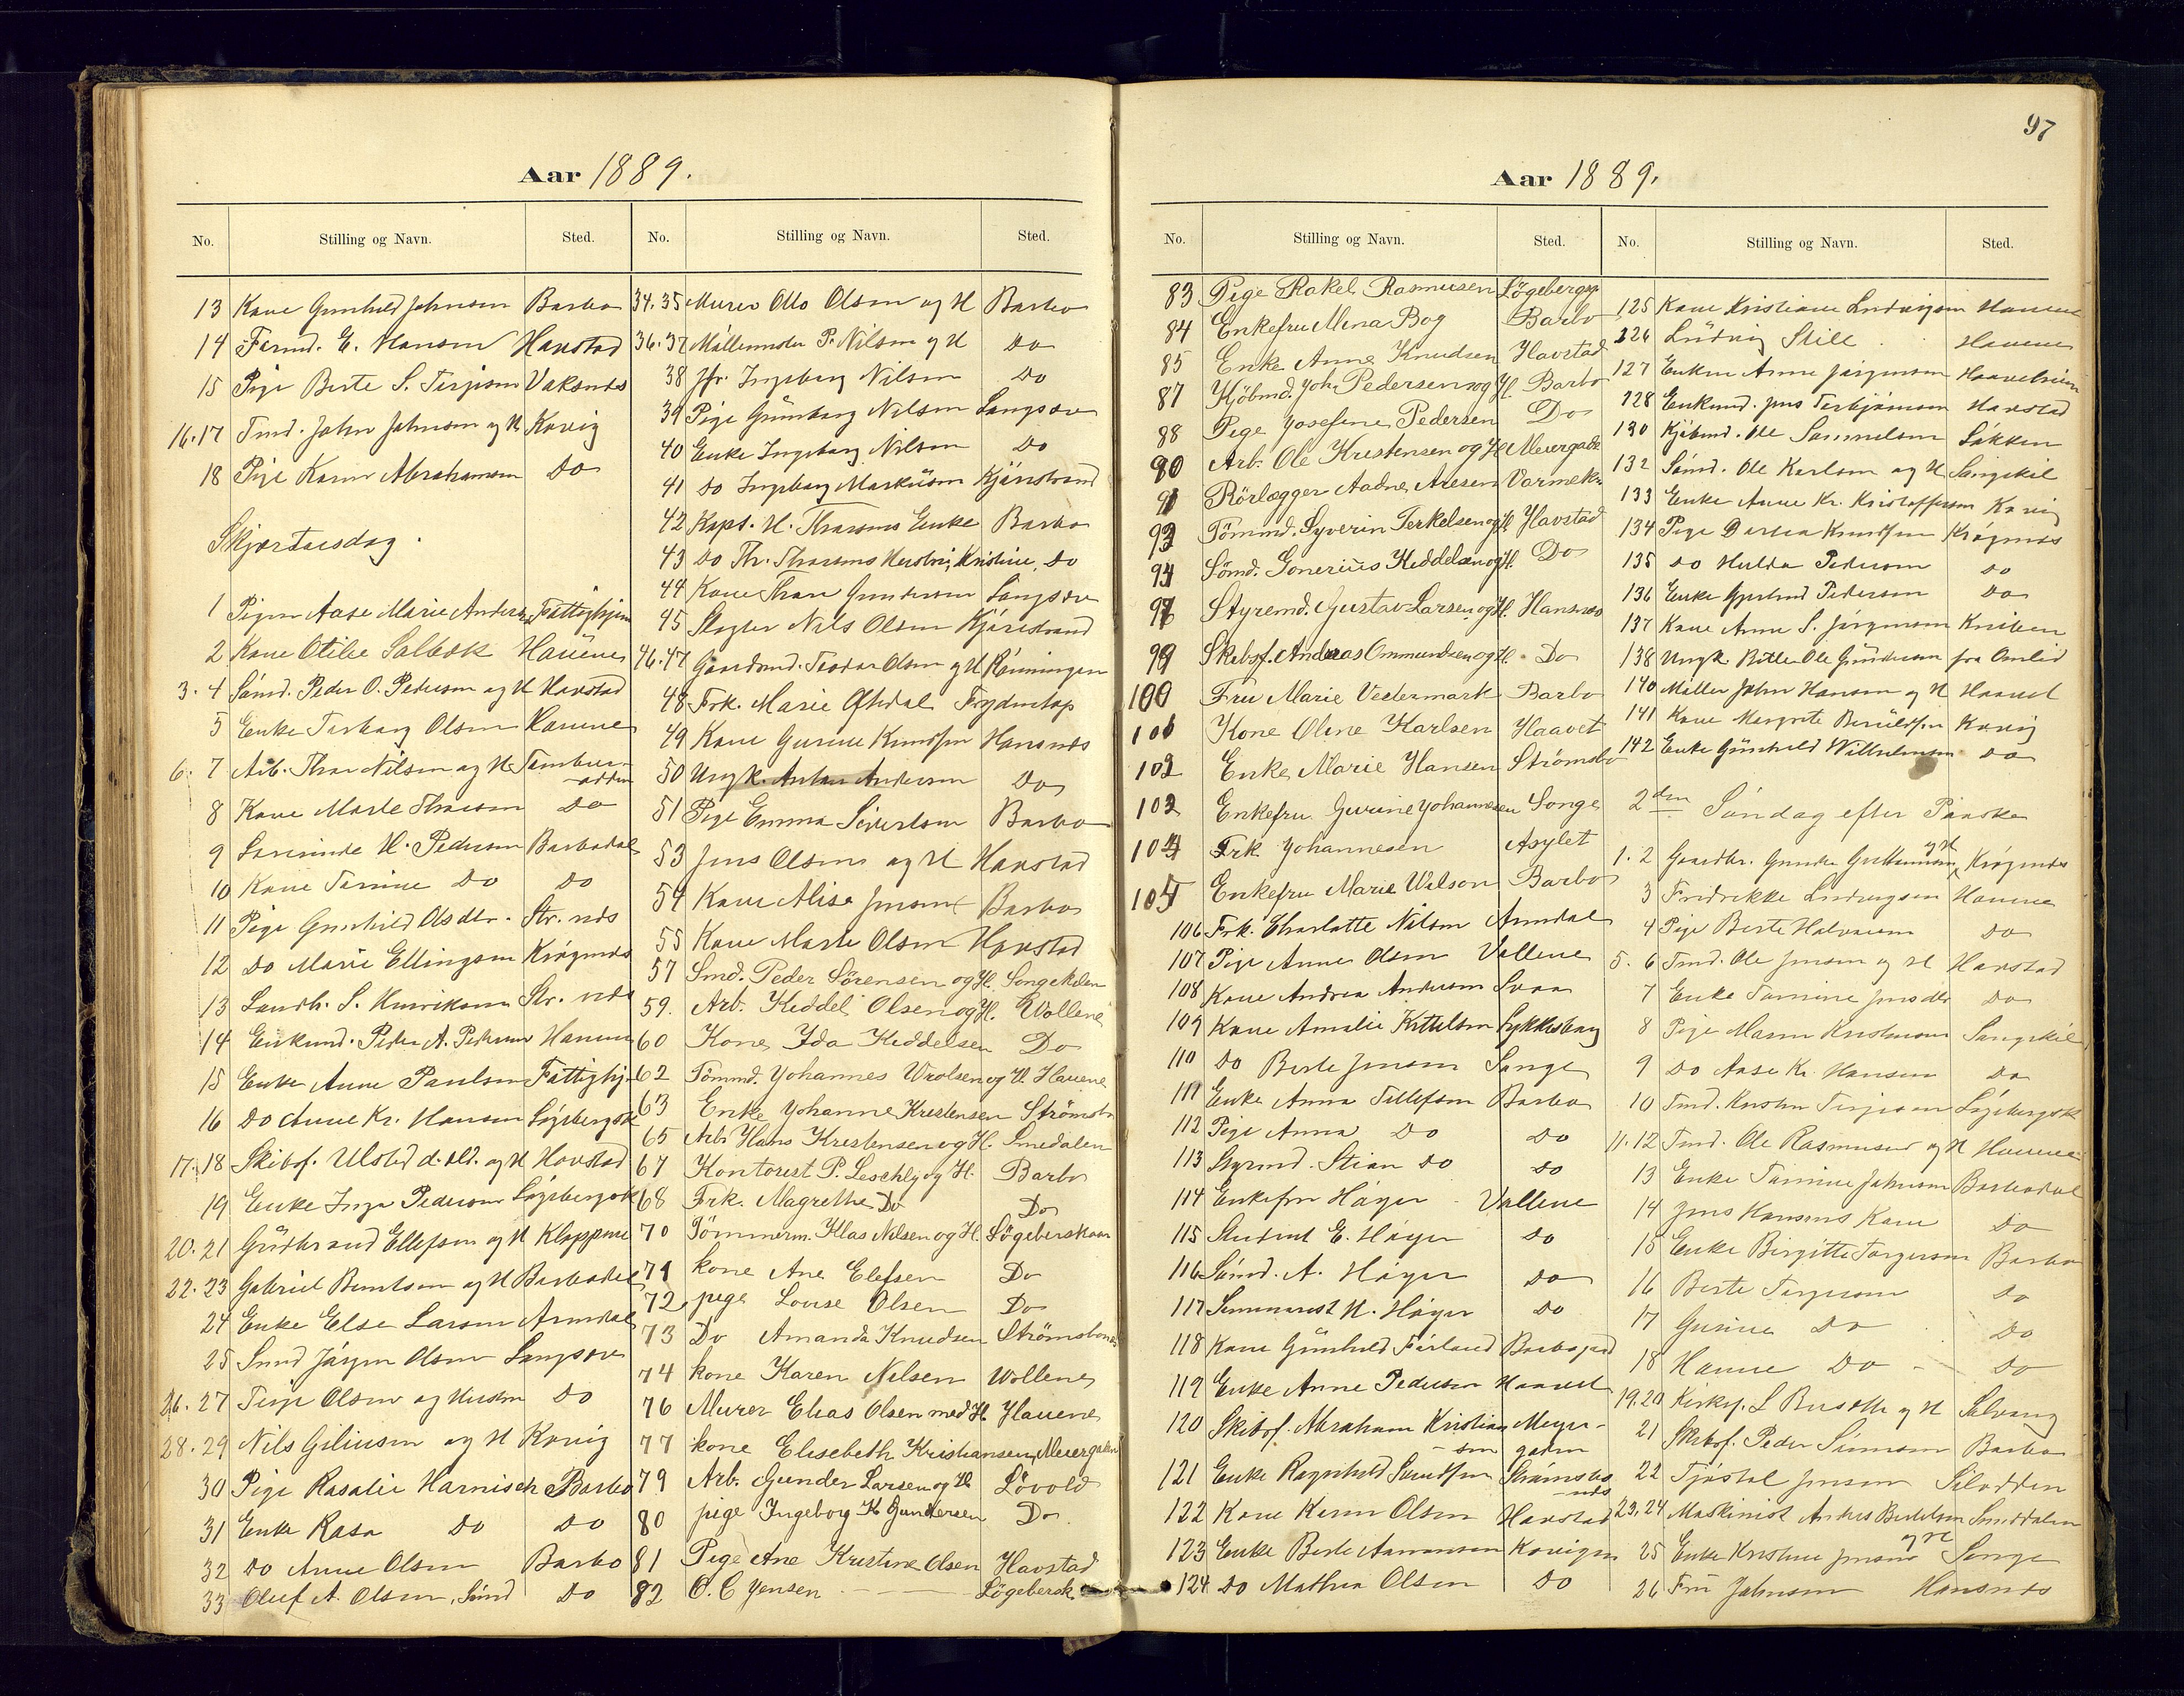 97
Aar 1889.
No. Stilling og Navn. Sted. No. Stilling og Navn. Sted.
13 Kone Gunhild Johnsen Barbo
14 Formd. E. Hansen Havstad
15 Pige Berte S. Terjesen Vaksnæs
16.17 Tmd. John Johnsen og H Kovig
18 Pige Karen Abrahamsen Do
Skjærtorsdag.
1 Pigen Aase Marie Anders Fattighjem
2 Kone Otilie Solbæk Hauene
3.4 Sömd. Peder O. Pedersen og H Havstad
5 Enke Torborg Olsen Hauene
6.7 Arb. Thor Nilsen og H Tømber-
odden
8 Kone Marte Thorsen Do
9 H. Pedersen Barbodal
10 Kone Tomine Do Do
11 Pige Gunhild Olsdtr. Str. nds
12 Do Marie Ellingsen Krögenæs
13 S. Henriksen Str. nds
14 Enkemd. Peder A. Pedersen Hauene
15 Enke Anne Paulsen Fattighj.
16 Do Anne Kr. Hansen Lögebergsk
17.18 Skibsf. Ulsted d. eld. og H Havstad
19 Enke Inger Pedersen Lögebergsk
20.21 Gudbrand Ellefsen og H Kloppene
22.23 Gabriel Berntsen og H Barbodal
24 Enke Else Larsen Arendal
25 Smd Jörgen Olsen Langsæv
26.27 Terje Olsen og Hustru Do
28.29 Nils Giliusen og H Kovig
30 Pige Rosalie Harnisch Barbo
31 Enke Rosa Do Do
32 Do Anne Olsen Barbo
33 Oluf A. Olsen, Sömd Do
34.35 Murer Otto Olsen og H Barbo
36.37 Möllemester P. Nilsen og H Do
38 Jfr. Ingeborg Nilsen Do
39 Pige Gunborg Nilsen Langsæv
40 Enke Ingeborg Nilsen Do
41 Do Ingeborg Markusen Kjörstrand
42 Kapt. H. Thorsens Enke Barbo
43 Do Th. Thorsens Hustru, Kristine, Do
44 Kone Thora Gundersen Langsæv
45 Slagter Nils Olsen Kjörestrand
46.47 Gaardmd. Teodor Olsen og H Rönningen
48 Frk. Marie Oftedal Frydentop
49 Kone Gurine Knudsen Hansnæs
50 Ungk. Anton Andersen Do
51 Pige Emma Sivertsen Barbo
53 Jens Olsen og H Havstad
54 Kone Alise Jensen Barbo
55 Kone Marte Olsen Havstad
57 Smd. Peder Sörensen og H. Songe Mölen
59. Arb. Keddel Olsen og H. Wollene
60 Kone Ida Keddelsen Do
62 Tömmd. Johannes Wrolsen og H. Hauene
63 Enke Johanne Kristensen Strömsbo
65 Arb. Hans Kristensen og H. Smedalen
67 Kontorist P. Leschly og H. Barbo
68 Frk. Magrethe Do Do
70 Tömmerm. Klas Nilsen og H. Lögeberskaar
71 kone Ane Elefsen Do
72 pige Lovise Olsen Do
73 Do Amanda Knudsen Strömsbo
74 kone Karen Nilsen Wollene
76 Murer Elias Olsen med H. Hauene
77 kone Elisebeth Kristiansen, Meiergaden
79 Arb. Gunder Larsen og H Lövold
80 pige Ingeborg K Gundersen Do.
81 Pige Ane Kristine Olsen Havstad
82 O. C Jensen Lögebersk.
Aar 1889.
No. Stilling og Navn. Sted. No. Stilling og Navn. Sted.
83 Pige Rakel Rasmusen Lögebergsk
84 Enkefru Mina Bog Barbo
85 Enke Anne Knudsen Havstad
87 Kjöbmd. Joh. Pedersen og H. Barbo
88 Pige Josefine Pedersen Do
90 Arb. Ole Kristensen og H Meiergade
91 Rörlægger Aadne Aresen Varmekr
93 Tömmd. Syverin Terkelsen og H Havstad
94 Sömd. Gonerius Keddelsen og H. Do
97 Styremd. Gustav Larsen og H. Hansnæs
99 Skibsf. Andreas Ommundsen og H. Do
100 Fru Marie Vedermark Barbo
101 Kone Oline Karlsen Haavet
102 Enke Marie Hansen Strömsbo
103 Enkefru Gurine Johannesen Songe
104 Frk Johannesen Asylet
105 Enkefru Marie Wilson Barbo
106 Frk. Charlotte Nilsen Arendal
107 Pige Anne Olsen Vollene
108 Kone Andrea Andersen Svaa
109 Kone Amalie Kittelsen Lykkesborg
110 Do Berte Jensen Songe
111 Enke Anna Tellefsen Barbo
112 Pige Anna Do Do
113 Styrmd. Stian Do Do
114 Enkefru Höyer Vollene
115 Student E. Höyer Do
116 Sömd. A. Höyer Do
117 Seminarist H. Höyer Do
118 Kone Gunhild Förland Barbogad
119 Enke Anne Pedersen Haavet
120 Skibsf. Abraham Kristian Meyer-
-sen gaden
121 Enke Ragnhild Strömsbo
nds
122 Kone Karen Olsen Havstad
123 Enke Berte Aanonsen Kovigen
124 Do Mathea Olsen Do
125 Kone Kristiane Ludvigsen Hauene
126 Ludvig Still Hauene
127 Enken Anne Jörgensen
128 Enkemd. Jens Torbjörnsen Havstad
130 Kjöbmd. Ole Samuelsen Lökken
132 Sömd. Ole Karlsen og H Songekil
133 Enke Anne Kr. Kristoffersen Kovig
134 Pige Dortea Knudsen Krögenæs
135 Do Hulda Pedersen Do
136 Enke Gjertrud Pedersen Do
137 Kone Anne S. Jörgensen Kniben
138 Ungk. Ole Gundersen fra Omlid
140 Möller John Hansen og H Haavet
141 Kone Margrete Kovig
142 Enke Gunhild Wilhelmsen Do
2den Söndag efter Paaske
og H
1.2 Gaardbr. Gunder Guttormsen, Krögenæs
3 Fredrikke Ludvigsen Hauene
4 Pige Berte Halvorsen Do
5.6 Tmd. Ole Jensen og H Havstad
7 Enke Tomine Jensdtr Do
8 Pige Maren Kristensen Songekil
9 Do Aase Kr. Hansen Do
10 Tmd. Kristen Terjesen Lögebergsk
11.12 Tmd. Ole Rasmusen og H Hauene
13 Enke Tomine Johnsen Barbodal
14 Jens Hansens Kone Do
15 Enke Birgitte Torgersen Barbo
16 Berte Torgersen Do
17 Gurine Do Do
18 Hanne Do - Do
19.20 Kirkes. L og H Solvang
21 Skibsf. Peder Simonsen Barbo
22 Tjöstol Jensen Silodden
23.24 Maskinist Anders Smeddalen
og H
25 Enke Kristine Jensen Songe
26 Fru Johnsen Hansnæs